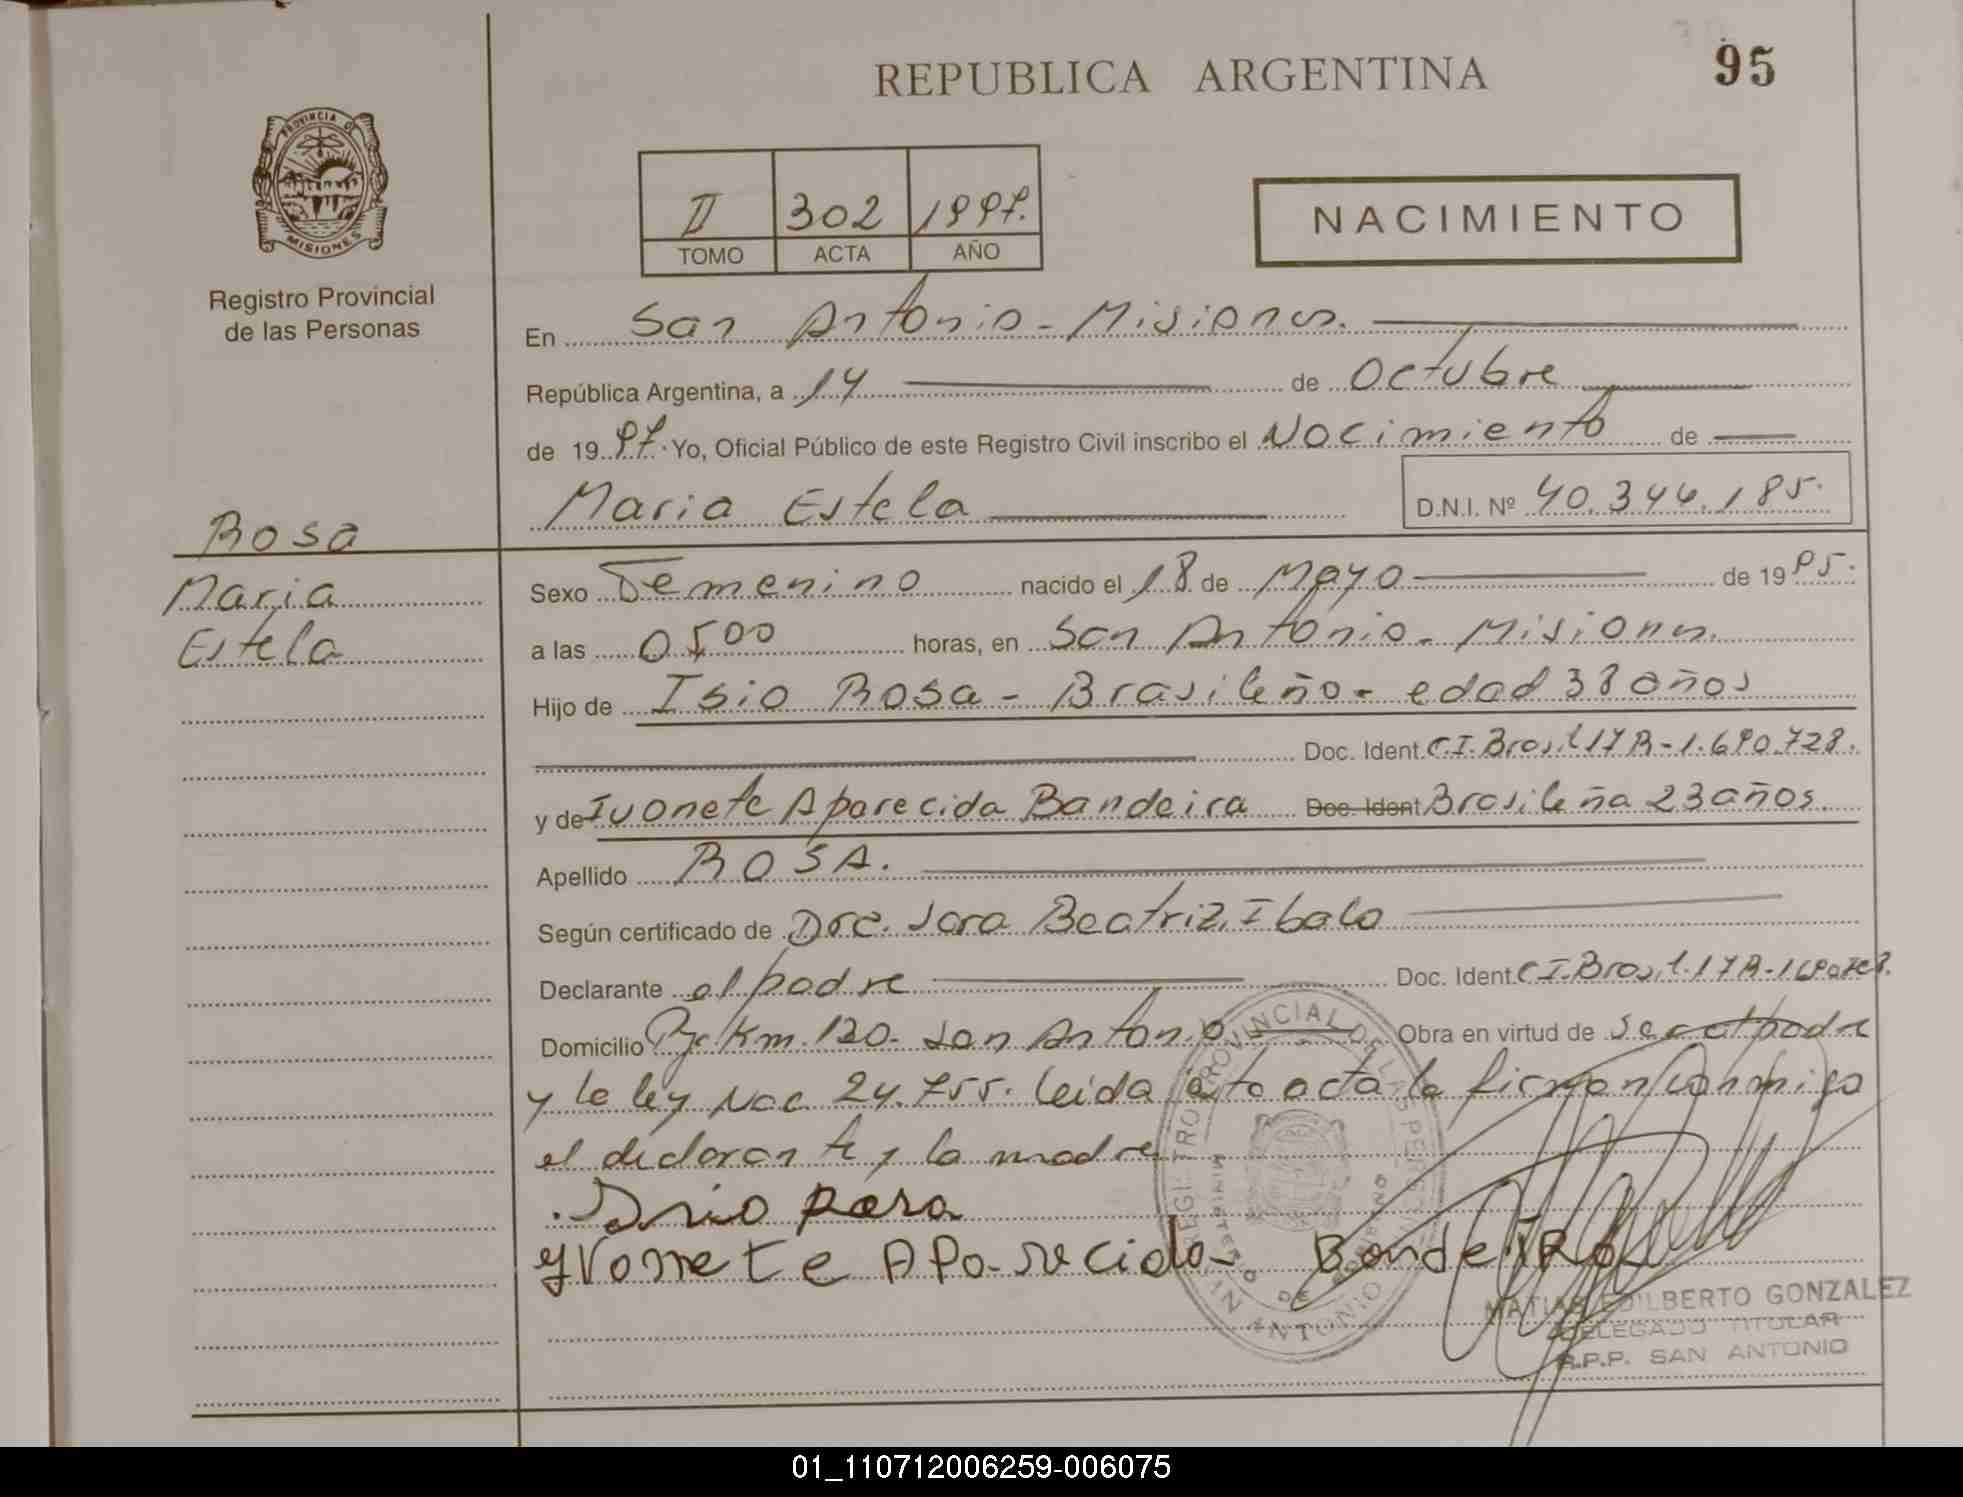 REPUBLICA ARGENTINA
95
PROVINCIA DE
MISIONES
Registro Provincial
de las Personas
II 302 1997.
TOMO ACTA AÑO
NACIMIENTO
En San Antonio - Misiones.
República Argentina, a 14 de Octubre
de 1997. Yo, Oficial Público de este Registro Civil inscribo el Nacimiento de
Maria Estela D.N.I. Nº 40.344.185.
Rosa
Maria
Estela
Sexo Femenino nacido el 18 de Mayo de 1995.
a las 0500 horas, en San Antonio - Misiones.
Hijo de Isio Rosa - Brasileño - edad 38 años
Doc. Ident. C.I. Brasil 17R-1.690.728.
y de Ivonete Aparecida Bandeira Doc. Ident Brasileña 23 años.
Apellido ROSA.
Según certificado de Dra. Sara Beatriz Ibalo
Declarante el padre Doc. Ident. C.I. Brasil 17R-1690728.
Domicilio Pje Km. 120 - San Antonio Obra en virtud de ser el padre
y la ley Nac. 24.755. leida esta acta la firman conmigo
el declarante y la madre
Isio Rosa
Yvonete Aparecida Bandeira
REGISTRO PROVINCIAL DE LAS PERSONAS
MINISTERIO DE GOBIERNO
SAN ANTONIO
MATIAS EDILBERTO GONZALEZ
DELEGADO TITULAR
R.P.P. SAN ANTONIO
01_110712006259-006075